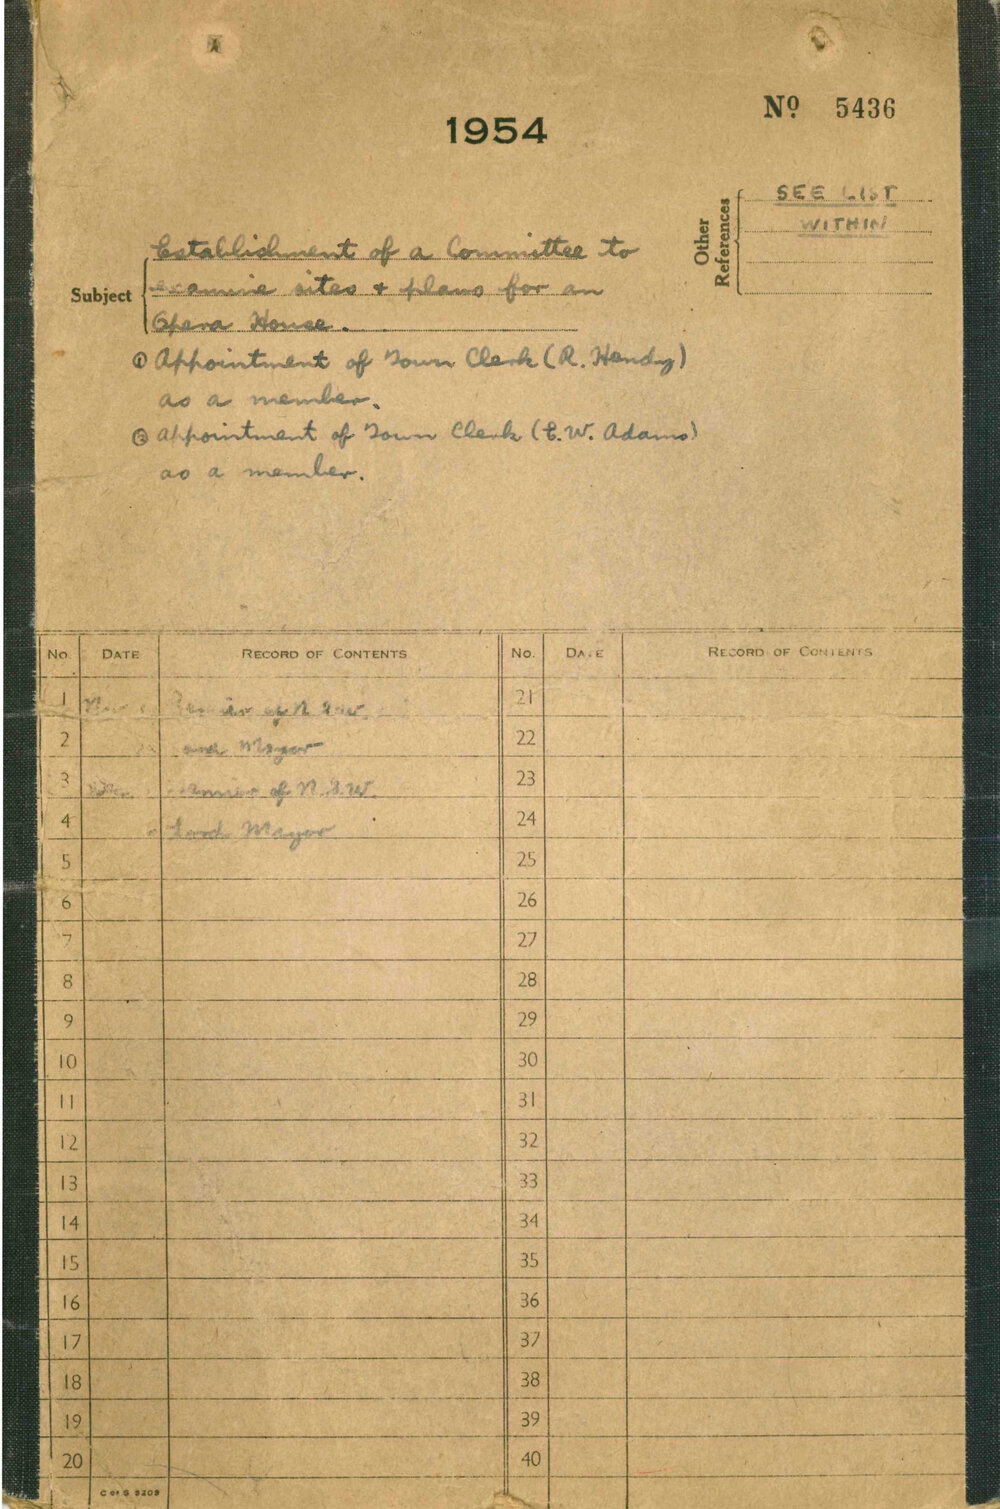 1954
Nº 5436
Other References
SEE LIST
WITHIN
Subject
Establishment of a Committee to
examine sites + plans for an
Opera House.
① Appointment of Town Clerk (R. Hendy)
as a member.
② Appointment of Town Clerk (E.W. Adams)
as a member.
No. DATE RECORD OF CONTENTS No. DATE RECORD OF CONTENTS
1 Premier of N.S.W. 21
2 Lord Mayor 22
3 Premier of N.S.W. 23
4 Lord Mayor 24
5 25
6 26
7 27
8 28
9 29
10 30
11 31
12 32
13 33
14 34
15 35
16 36
17 37
18 38
19 39
20 40
C of S 9209